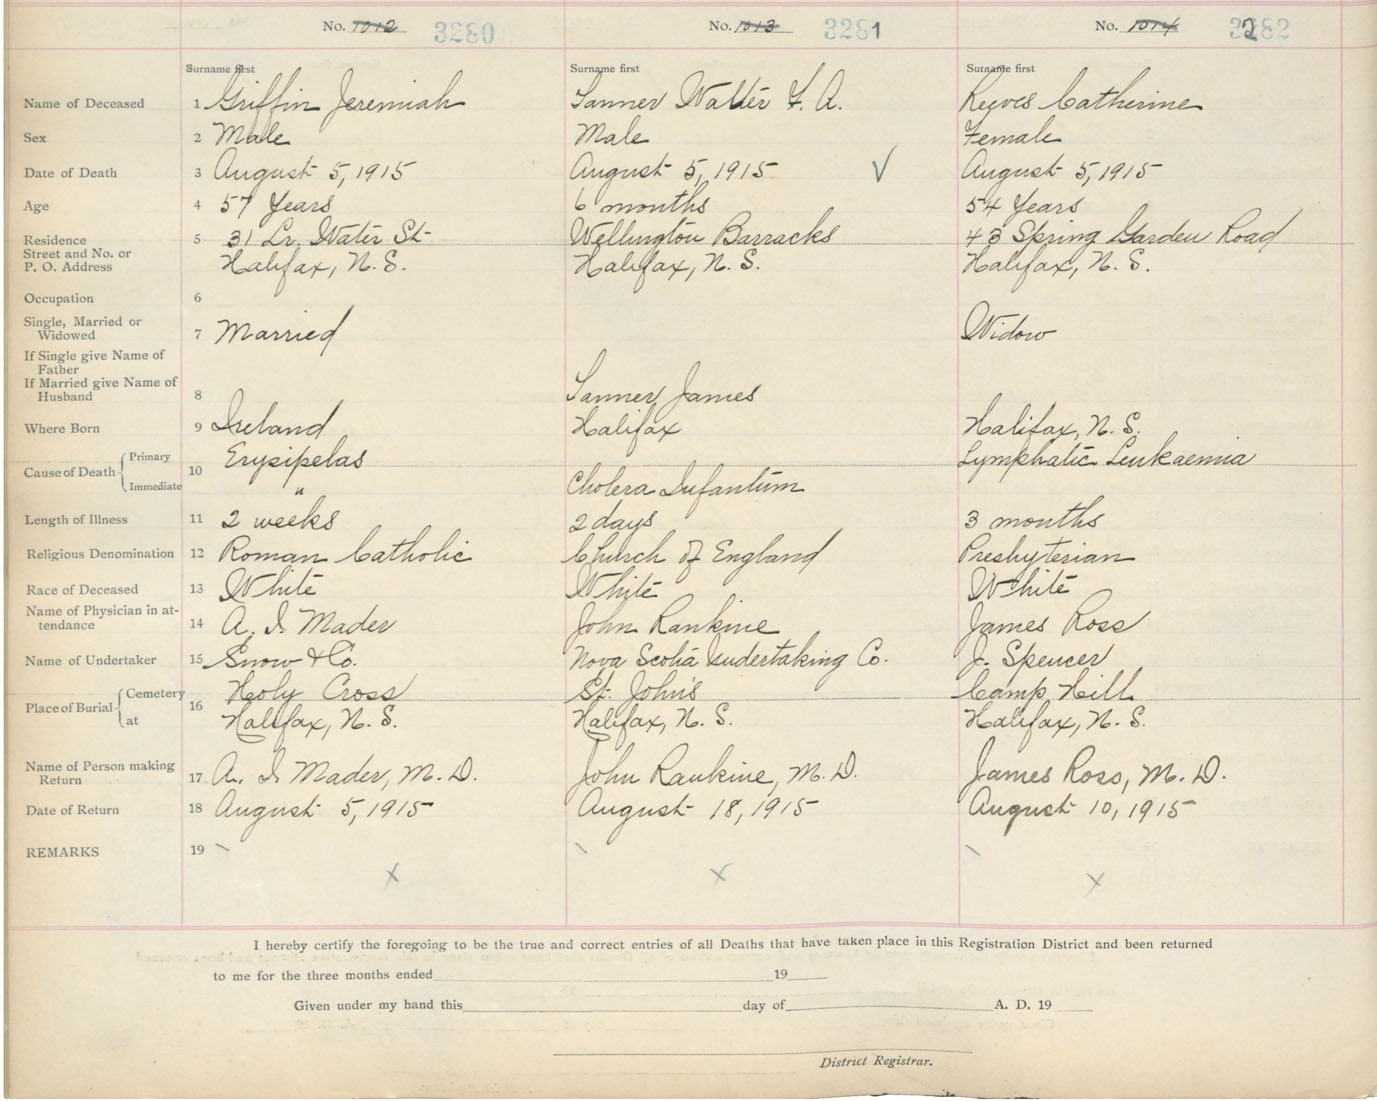 No. 1012 3280 No. 1013 3281 No. 1014 3282
Surname first Surname first Surname first
Name of Deceased 1 Griffin Jeremiah Tanner Walter F. A. Reeves Catherine
Sex 2 Male Male Female
Date of Death 3 August 5, 1915 August 5, 1915 August 5, 1915
Age 4 57 Years 6 months 54 Years
Residence 5 31 Lr. Water St Wellington Barracks 43 Spring Garden Road
Street and No. or
P. O. Address Halifax, N. S. Halifax, N. S. Halifax, N. S.
Occupation 6
Single, Married or
Widowed 7 Married Widow
If Single give Name of
Father
If Married give Name of
Husband 8 Tanner James
Where Born 9 Ireland Halifax Halifax, N. S.
Cause of Death Primary 10 Erysipelas Lymphatic Leukaemia
Immediate " Cholera Infantum
Length of Illness 11 2 weeks 2 days 3 months
Religious Denomination 12 Roman Catholic Church of England Presbyterian
Race of Deceased 13 White White White
Name of Physician in at-
tendance 14 A. I. Mader John Rankine James Ross
Name of Undertaker 15 Snow & Co. Nova Scotia undertaking Co. J. Spencer
Place of Burial Cemetery 16 Holy Cross St. John's Camp Hill
at Halifax, N. S. Halifax, N. S. Halifax, N. S.
Name of Person making
Return 17 A. I. Mader, M. D. John Rankine, M. D. James Ross, M. D.
Date of Return 18 August 5, 1915 August 18, 1915 August 10, 1915
REMARKS 19
I hereby certify the foregoing to be the true and correct entries of all Deaths that have taken place in this Registration District and been returned
to me for the three months ended 19
Given under my hand this day of A. D. 19
District Registrar.